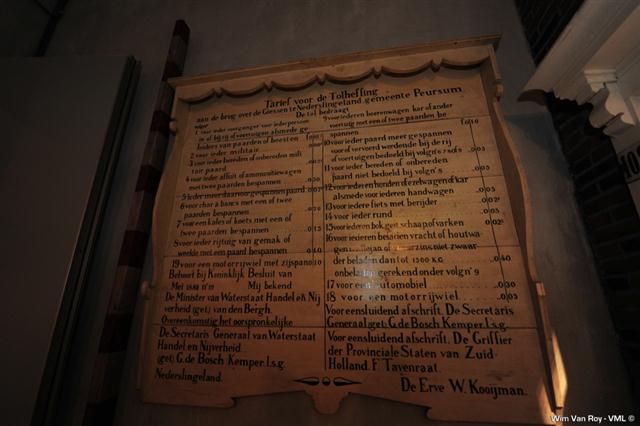 Tarief voor de Tolheffing
aan de brug over de Giessen te Nederslingeland, gemeente Peursum.
De tol bedraagt
1 voor ieder voorganger voor ieder persoon
in of bij rij of voertuigen alsmede ge
leiders van paarden of beesten
2 voor ieder militair
3 voor ieder bereden of onbereden mili
tair paard
4 voor ieder affuit of ammunitiewagen
met twee paarden bespannen 0.30
5 Ieder meer daarvoor gespannen paard
6 voor char à bancs met een of twee
paarden bespannen 0.20
7 voor een kales of koets met een of
twee paarden bespannen 0.15
8 voor ieder rijtuig van gemak of
weelde met een paard bespannen 0.10
19 voor een motorrijwiel met zijspan 0.10
Behoort bij Koninklijk Besluit van
Mei Mij bekend
De Minister van Waterstaat Handel en Nij
verheid (get) van den Bergh.
Overeenkomstig het oorspronkelijke
De Secretaris Generaal van Waterstaat
Handel en Nijverheid
(get) G. de Bosch Kemper. l.s.g.
Nederslingeland.
9 voor iederen boerenwagen kar of ander
voertuig met een of twee paarden be
spannen 0.10
10 voor ieder paard meer gespannen
voor of vervoerd wordende bij de rij
of voertuigen bedoeld bij volgn's 6 7 8 of 9 0.05
11 voor ieder bereden of onbereden
paard niet bedoeld bij volgn's 0.05
12 voor iederen honden of ezelwagen of kar
alsmede voor iederen handwagen 0.03
13 voor iedere fiets met berijder
14 voor ieder rund 0.05
15 voor iederen bok, geit schaap of varken
16 voor iedere beladen vracht of houtwa-
niet zwaar
der beladen dan tot 1500 KG. 0.40
onbeladen gerekend onder volgn's 9
17 voor een automobiel 0.30
18 voor een motorrijwiel 0.05
Voor eensluidend afschrift. De Secretaris
Generaal (get) G. de Bosch Kemper. l.s.g.
Voor eensluidend afschrift. De Griffier
der Provinciale Staten van Zuid-
Holland. F Tavenraat.
De Erve W. Kooijman.
Wim Van Roy - VML ©